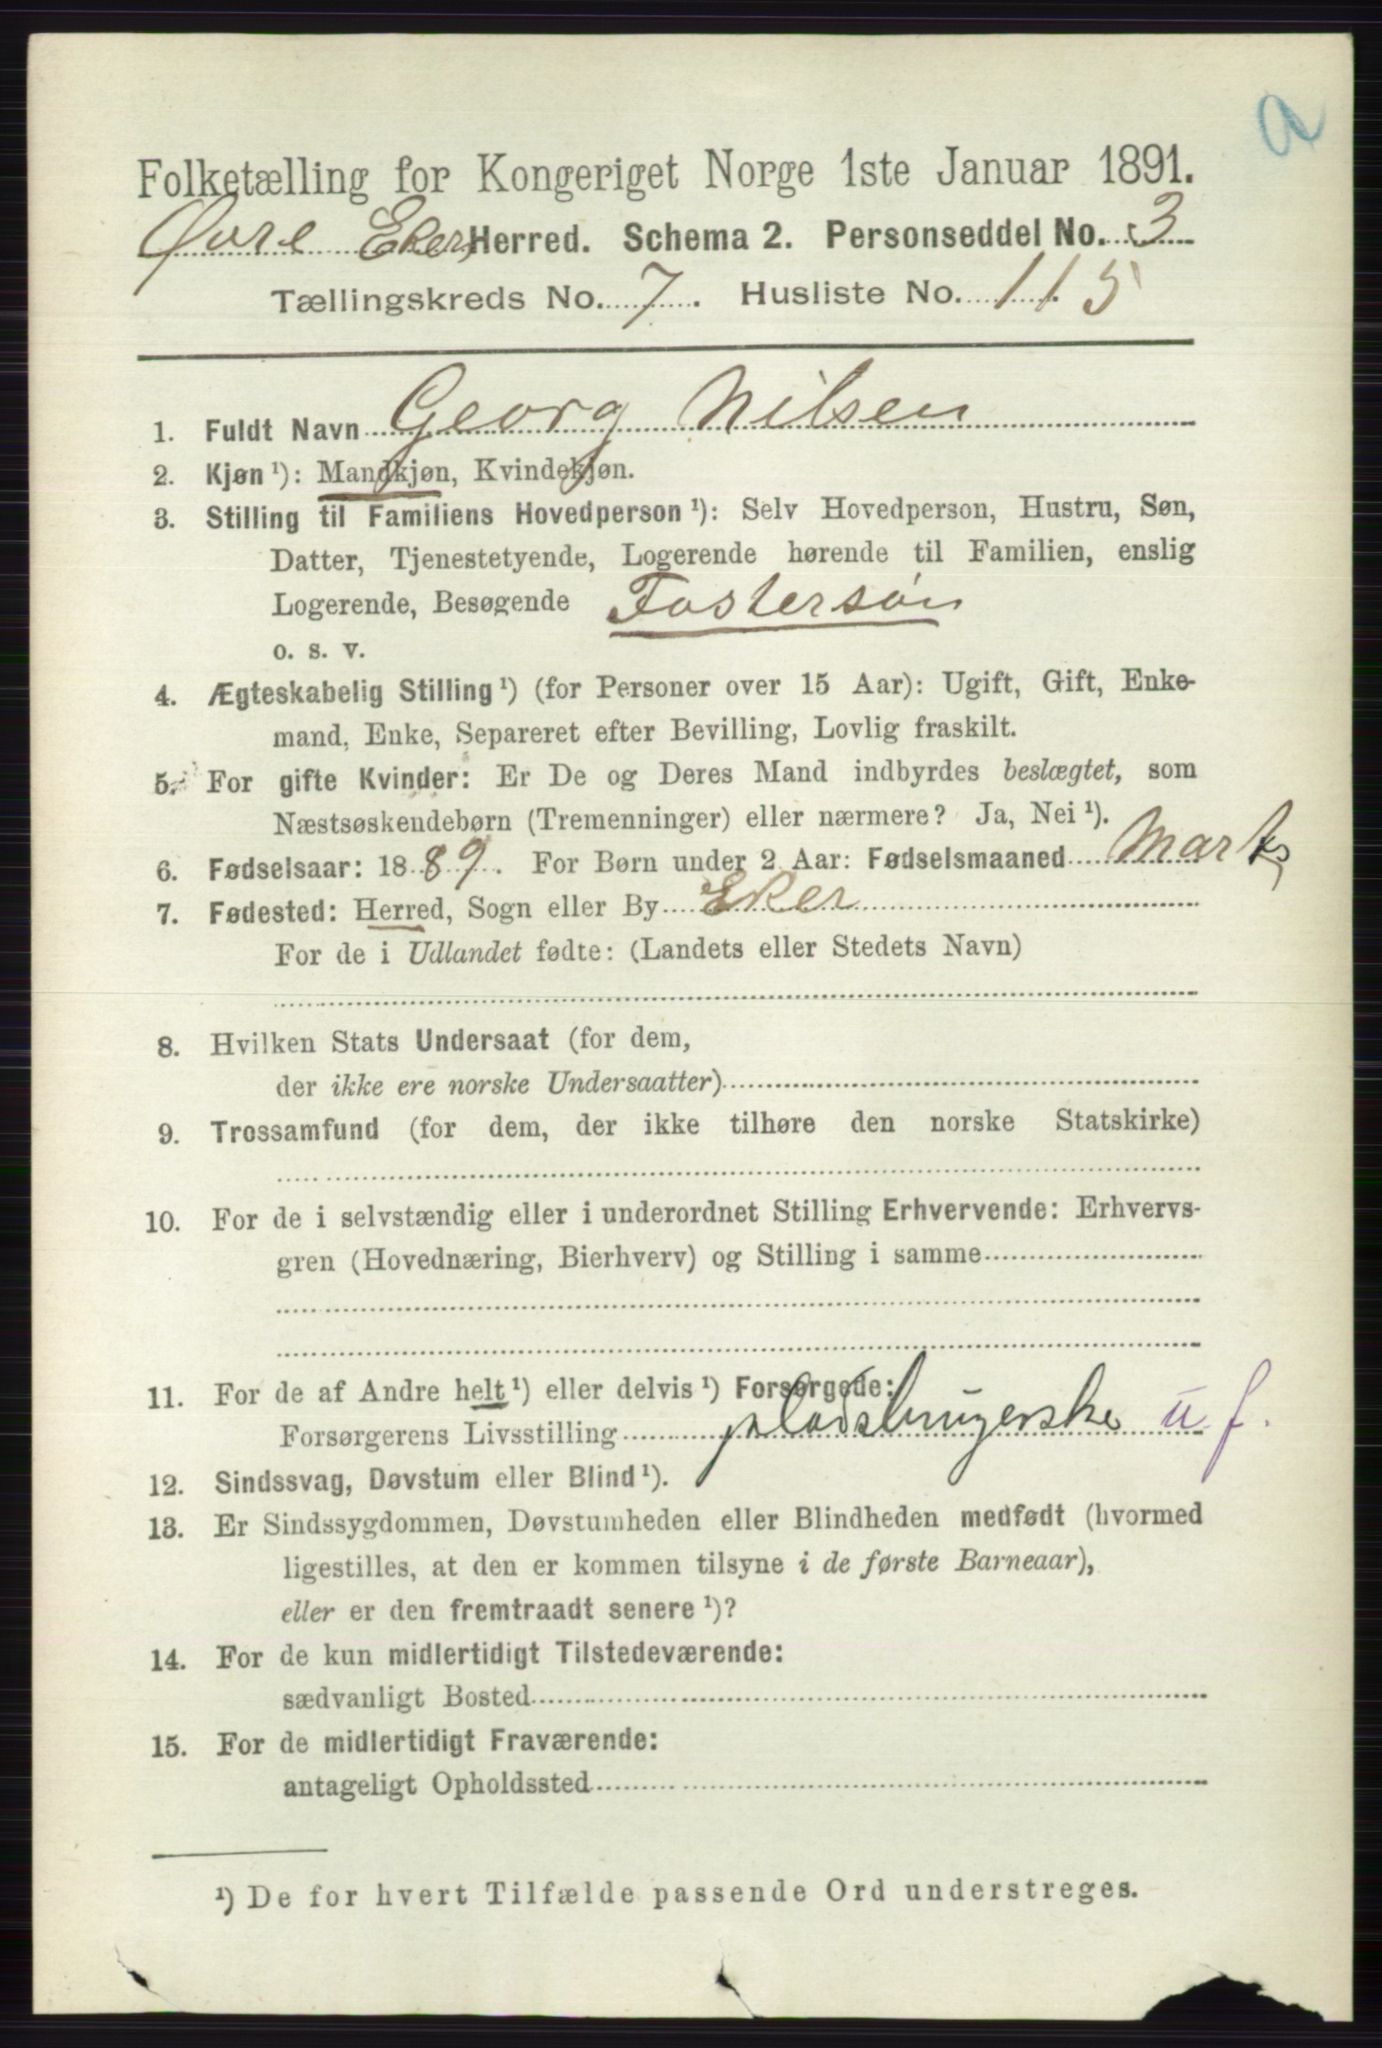 a
Folketælling for Kongeriget Norge 1ste Januar 1891.
Øvre Eker Herred. Schema 2. Personseddel No. 3
Tællingskreds No. 7. Husliste No. 115
1. Fuldt Navn Georg Nilsen
2. Kjøn ¹): Mandkjøn, Kvindekjøn.
3. Stilling til Familiens Hovedperson ¹): Selv Hovedperson, Hustru, Søn,
Datter, Tjenestetyende, Logerende hørende til Familien, enslig
Logerende, Besøgende Fostersøn
o. s. v.
4. Ægteskabelig Stilling ¹) (for Personer over 15 Aar): Ugift, Gift, Enke-
mand, Enke, Separeret efter Bevilling, Lovlig fraskilt.
5. For gifte Kvinder: Er De og Deres Mand indbyrdes beslægtet, som
Næstsøskendebørn (Tremenninger) eller nærmere? Ja, Nei ¹).
6. Fødselsaar: 1889. For Børn under 2 Aar: Fødselsmaaned Marts
7. Fødested: Herred, Sogn eller By Eker
For de i Udlandet fødte: (Landets eller Stedets Navn)
8. Hvilken Stats Undersaat (for dem,
der ikke ere norske Undersaatter)
9. Trossamfund (for dem, der ikke tilhøre den norske Statskirke)
10. For de i selvstændig eller i underordnet Stilling Erhvervende: Erhvervs-
gren (Hovednæring, Bierhverv) og Stilling i samme
11. For de af Andre helt ¹) eller delvis ¹) Forsørgede:
Forsørgerens Livsstilling pladsbrugerske u f.
12. Sindssvag, Døvstum eller Blind ¹).
13. Er Sindssygdommen, Døvstumheden eller Blindheden medfødt (hvormed
ligestilles, at den er kommen tilsyne i de første Barneaar),
eller er den fremtraadt senere ¹)?
14. For de kun midlertidigt Tilstedeværende:
sædvanligt Bosted
15. For de midlertidigt Fraværende:
antageligt Opholdssted
¹) De for hvert Tilfælde passende Ord understreges.